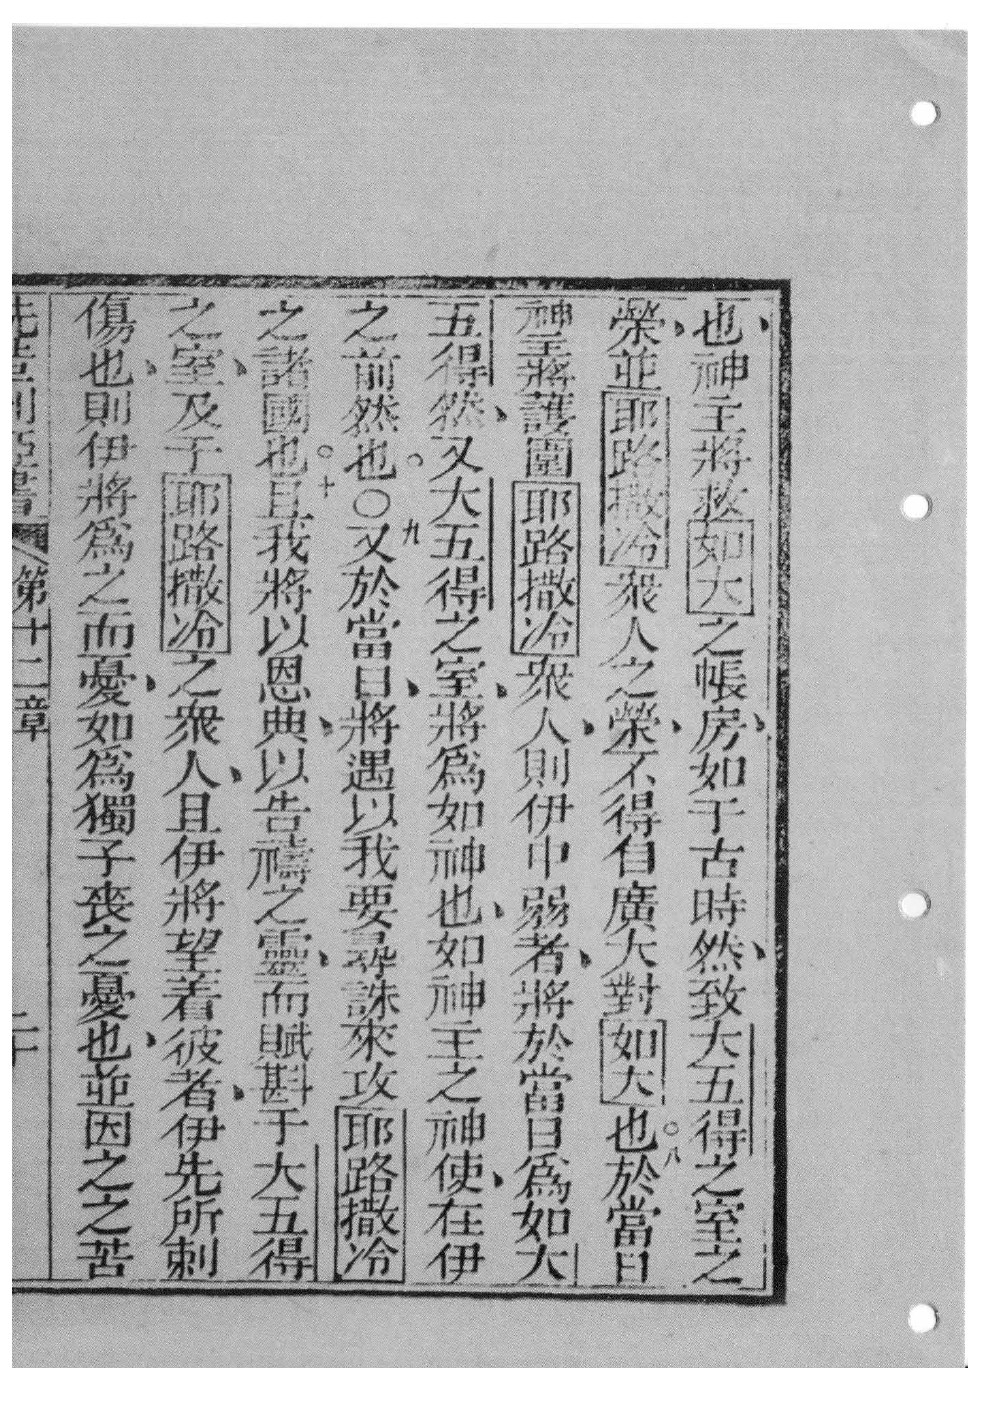 也神主將救如大之帳房如于古時然致大五得之室之
榮並耶路撒冷衆人之榮不得自廣大對如大也○八於當日
神主將護圍耶路撒冷衆人則伊中弱者將於當日爲如大
五得然又大五得之室將爲如神也如神主之神使在伊
之前然也○○九又於當日將遇以我要尋誅來攻耶路撒冷
之諸國也○十且我將以恩典以告禱之靈而賦斟于大五得
之室及于耶路撒冷之衆人且伊將望着彼者伊先所刺
傷也則伊將爲之而憂如爲獨子喪之憂也並因之之苦
第十二章
二十